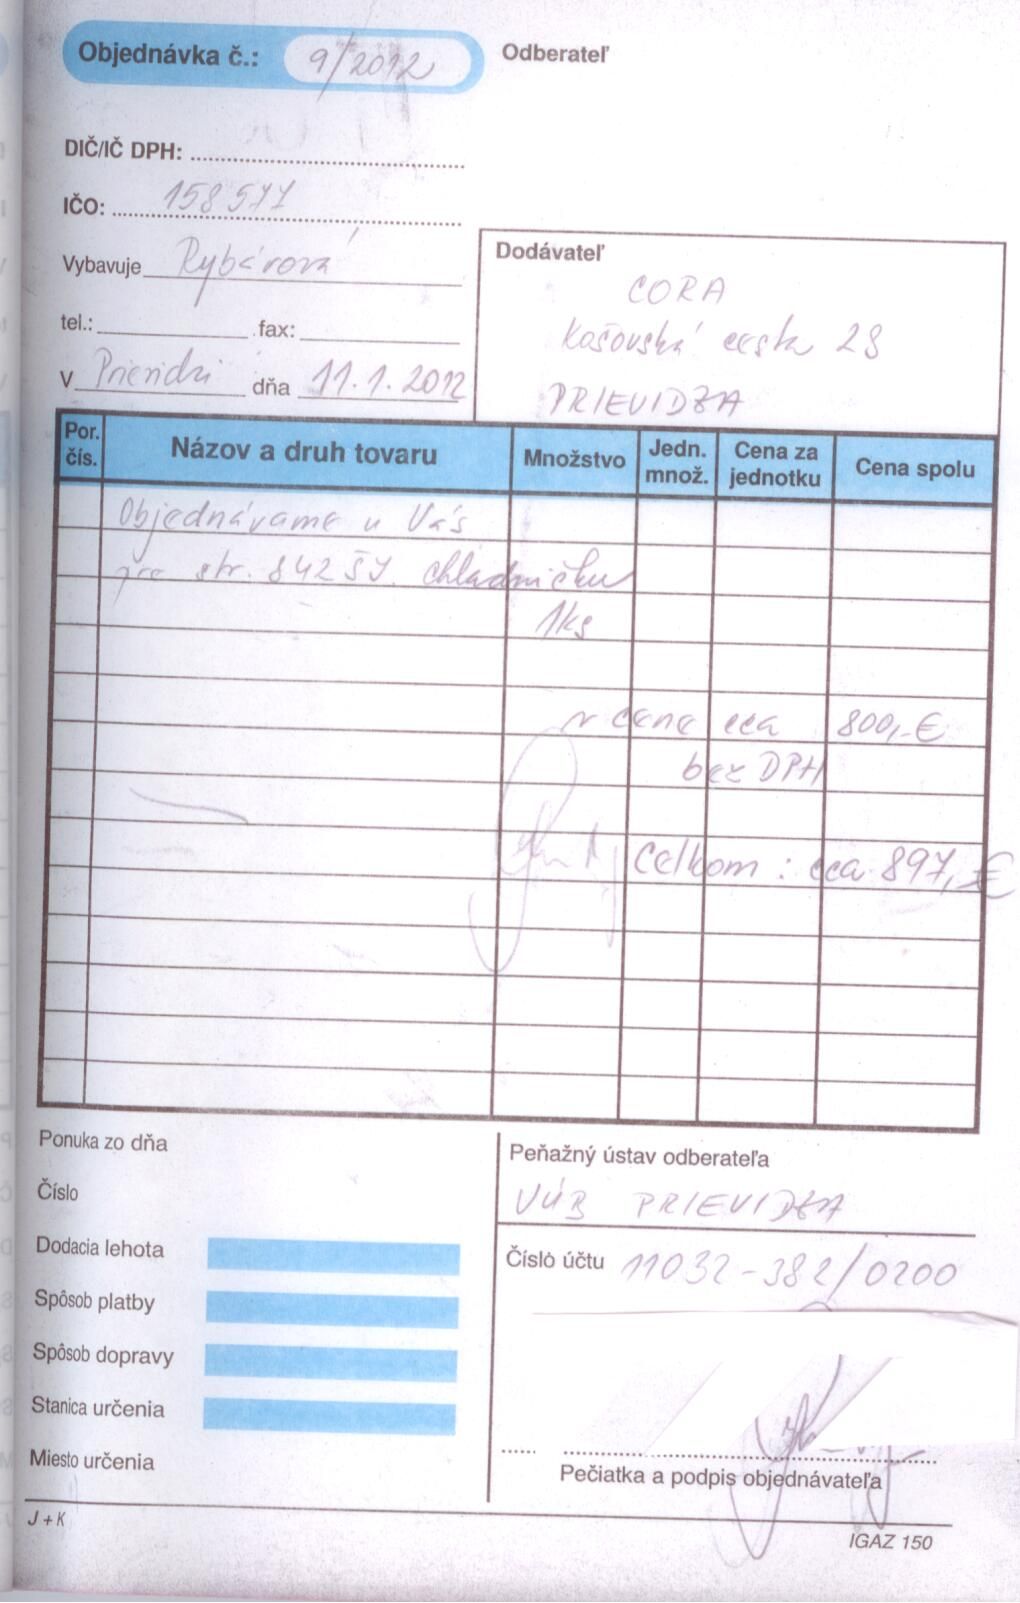 Objednávka č.: 9/2012
Odberateľ
DIČ/IČ DPH:
IČO: 158577
Vybavuje Rybárová
tel.: fax:
V Prievidzi dňa 11.1.2012
Dodávateľ
CORA
Košovská cesta 28
PRIEVIDZA
Por. čís. Názov a druh tovaru Množstvo Jedn. množ. Cena za jednotku Cena spolu
Objednávame u Vás
pre str. 842 ŠJ. chladničku
1ks
v cene cca 800,-€
bez DPH
Celkom : cca 897,-€
Ponuka zo dňa
Číslo
Dodacia lehota
Spôsob platby
Spôsob dopravy
Stanica určenia
Miesto určenia
Peňažný ústav odberateľa
VÚB PRIEVIDZA
Číslo účtu 11032-382/0200
Pečiatka a podpis objednávateľa
J + K
IGAZ 150